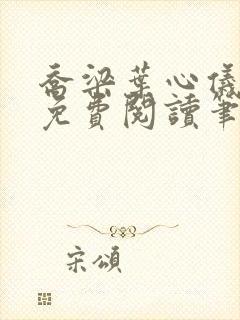 喬梁葉心儀
免費閱讀筆
宋頌